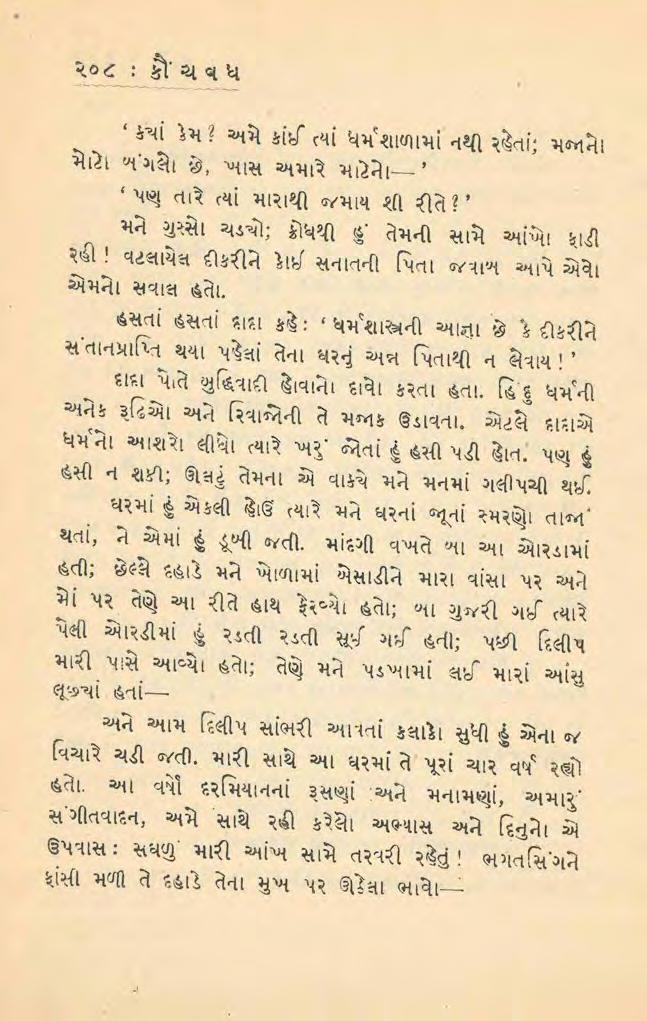 ૨૦૮ : ક્રૌંચવધ
‘ ક્યાં કેમ? અમે કાંઈ ત્યાં ધર્મશાળામાં નથી રહેતાં; મજાનો
મોટો બંગલો છે, ખાસ અમારે માટેનો—’
‘ પણ તારે ત્યાં મારાથી જમાય શી રીતે?’
મને ગુસ્સો ચડ્યો; ક્રોધથી હું તેમની સામે આંખો ફાડી
રહી! વટલાયેલ દીકરીને કોઈ સનાતની પિતા જવાબ આપે એવો
એમનો સવાલ હતો.
હસતાં હસતાં દાદા કહે: ‘ ધર્મશાસ્ત્રની આજ્ઞા છે કે દીકરીને
સંતાનપ્રાપ્તિ થયા પહેલાં તેના ઘરનું અન્ન પિતાથી ન લેવાય!’
દાદા પોતે બુદ્ધિવાદી હોવાનો દાવો કરતા હતા. હિંદુ ધર્મની
અનેક રૂઢિઓ અને રિવાજોની તે મજાક ઉડાવતા. એટલે દાદાએ
ધર્મનો આશરો લીધો ત્યારે ખરું જોતાં હું હસી પડી હોત. પણ હું
હસી ન શકી; ઊલટું તેમના એ વાક્યે મને મનમાં ગલીપચી થઈ.
ઘરમાં હું એકલી હોઉં ત્યારે મને ઘરનાં જૂનાં સ્મરણો તાજાં
થતાં, ને એમાં હું ડૂબી જતી. માંદગી વખતે બા આ ઓરડામાં
હતી; છેલ્લે દહાડે મને ખોળામાં બેસાડીને મારા વાંસા પર અને
મોં પર તેણે આ રીતે હાથ ફેરવ્યો હતો; બા ગુજરી ગઈ ત્યારે
પેલી ઓરડીમાં હું રડતી રડતી સૂઈ ગઈ હતી; પછી દિલીપ
મારી પાસે આવ્યો હતો; તેણે મને પડખામાં લઈ મારાં આંસુ
લૂછ્યાં હતાં—
અને આમ દિલીપ સાંભરી આવતાં કલાકો સુધી હું એના જ
વિચારે ચડી જતી. મારી સાથે આ ઘરમાં તે પૂરાં ચાર વર્ષ રહ્યો
હતો. આ વર્ષો દરમિયાનનાં રૂસણાં અને મનામણાં, અમારું
સંગીતવાદન, અમે સાથે રહી કરેલો અભ્યાસ અને દિનુનો એ
ઉપવાસ: સઘળું મારી આંખ સામે તરવરી રહેતું! ભગતસિંગને
ફાંસી મળી તે દહાડે તેના મુખ પર ઊઠેલા ભાવો—